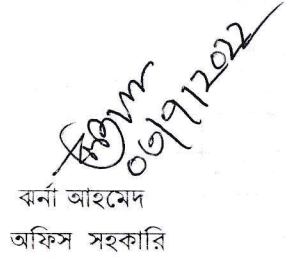 ০৬/৭/২০২২
ঝর্না আহমেদ
অফিস সহকারি